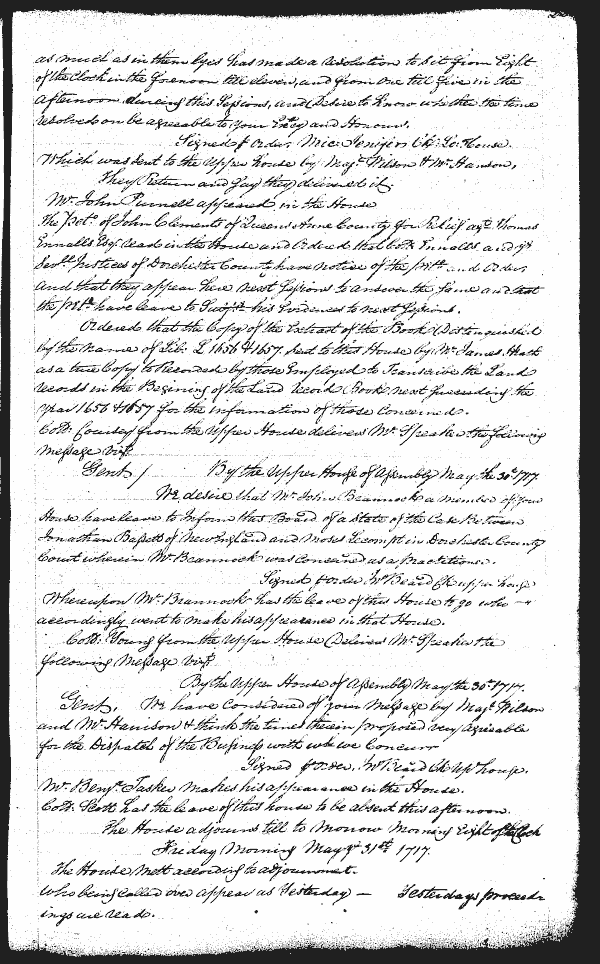 as much as in them lyes has made a resolution to sit from Eight
of the Clock in the forenoon till eleven, and from one till five in the
afternoon dureing this Sessions, and Desire to know whether the time
resolved on be agreable to your Excy and Honours.
Signed p Order Mic: Jenifer Clk: Lo: House.
Which was sent to the Upper house by Majr. Wilson & Mr. Hanson,
They Return and Say they delivered it.
Mr. John Purnell appeared in the House
The Petn. of John Clements of Queens Anne County for Relief agt. Thomas
Ennalls Esqr. read in the House and Ordered that Coll. Ennalls and ye
Sevll. Justices of Dorchester County have notice of the Petn. and Order
and that they appear here next Sessions to answer the Same and that
the Petr. have leave to his Evidences to next Sessions.
Ordered that the Copy of the Extract of the Book Distinguished
by the name of Lib: L 1656 & 1657, sent to this House by Mr. James Heath
as a true Copy be Recorded by those Employed to Transcribe the Land
records in the Begining of the Land record Book next preceeding the
year 1656 & 1657 for the information of those Concerned.
Coll: Coursey from the Upper House delivers Mr. Speaker the following
Message Vizt.
Gent/ By the Upper House of Assembly May the 30th. 1717.
We desire that Mr. John Brannock a member of your
House have leave to Inform this Board of a State of the Case Between
Jonathan Bassett of New England and Moses Lecompt in Dorchester County
Court wherein Mr. Brannock was Concerned as a Practitioner.
Signed p Order, Wm Beard Clk upper house
Whereupon Mr. Brannock has the leave of this House to go who
accordingly went to make his appearance in that House.
Coll: Young from the Upper House Delivers Mr. Speaker the
following Message Vizt.
By the Upper House of Assembly May the 30th. 1717.
Gent, We have Considered of your Message by Majr. Wilson
and Mr. Hanison & think the times therein proposed very Agreeable
for the Dispatch of the Business with wch we Concurr
Signed p Order, Wm Beard Clk Up house.
Mr. Benja. Tasker makes his appearance in the House.
Coll: Scott has the leave of this house to be absent this afternoon.
The House adjourns till to Morrow Morning Eight of the Clock
Friday Morning May ye 31st. 1717.
The House Mett according to adjournment.
Who being Called over appear as Yesterday — Yesterdays proceed
ings are read.